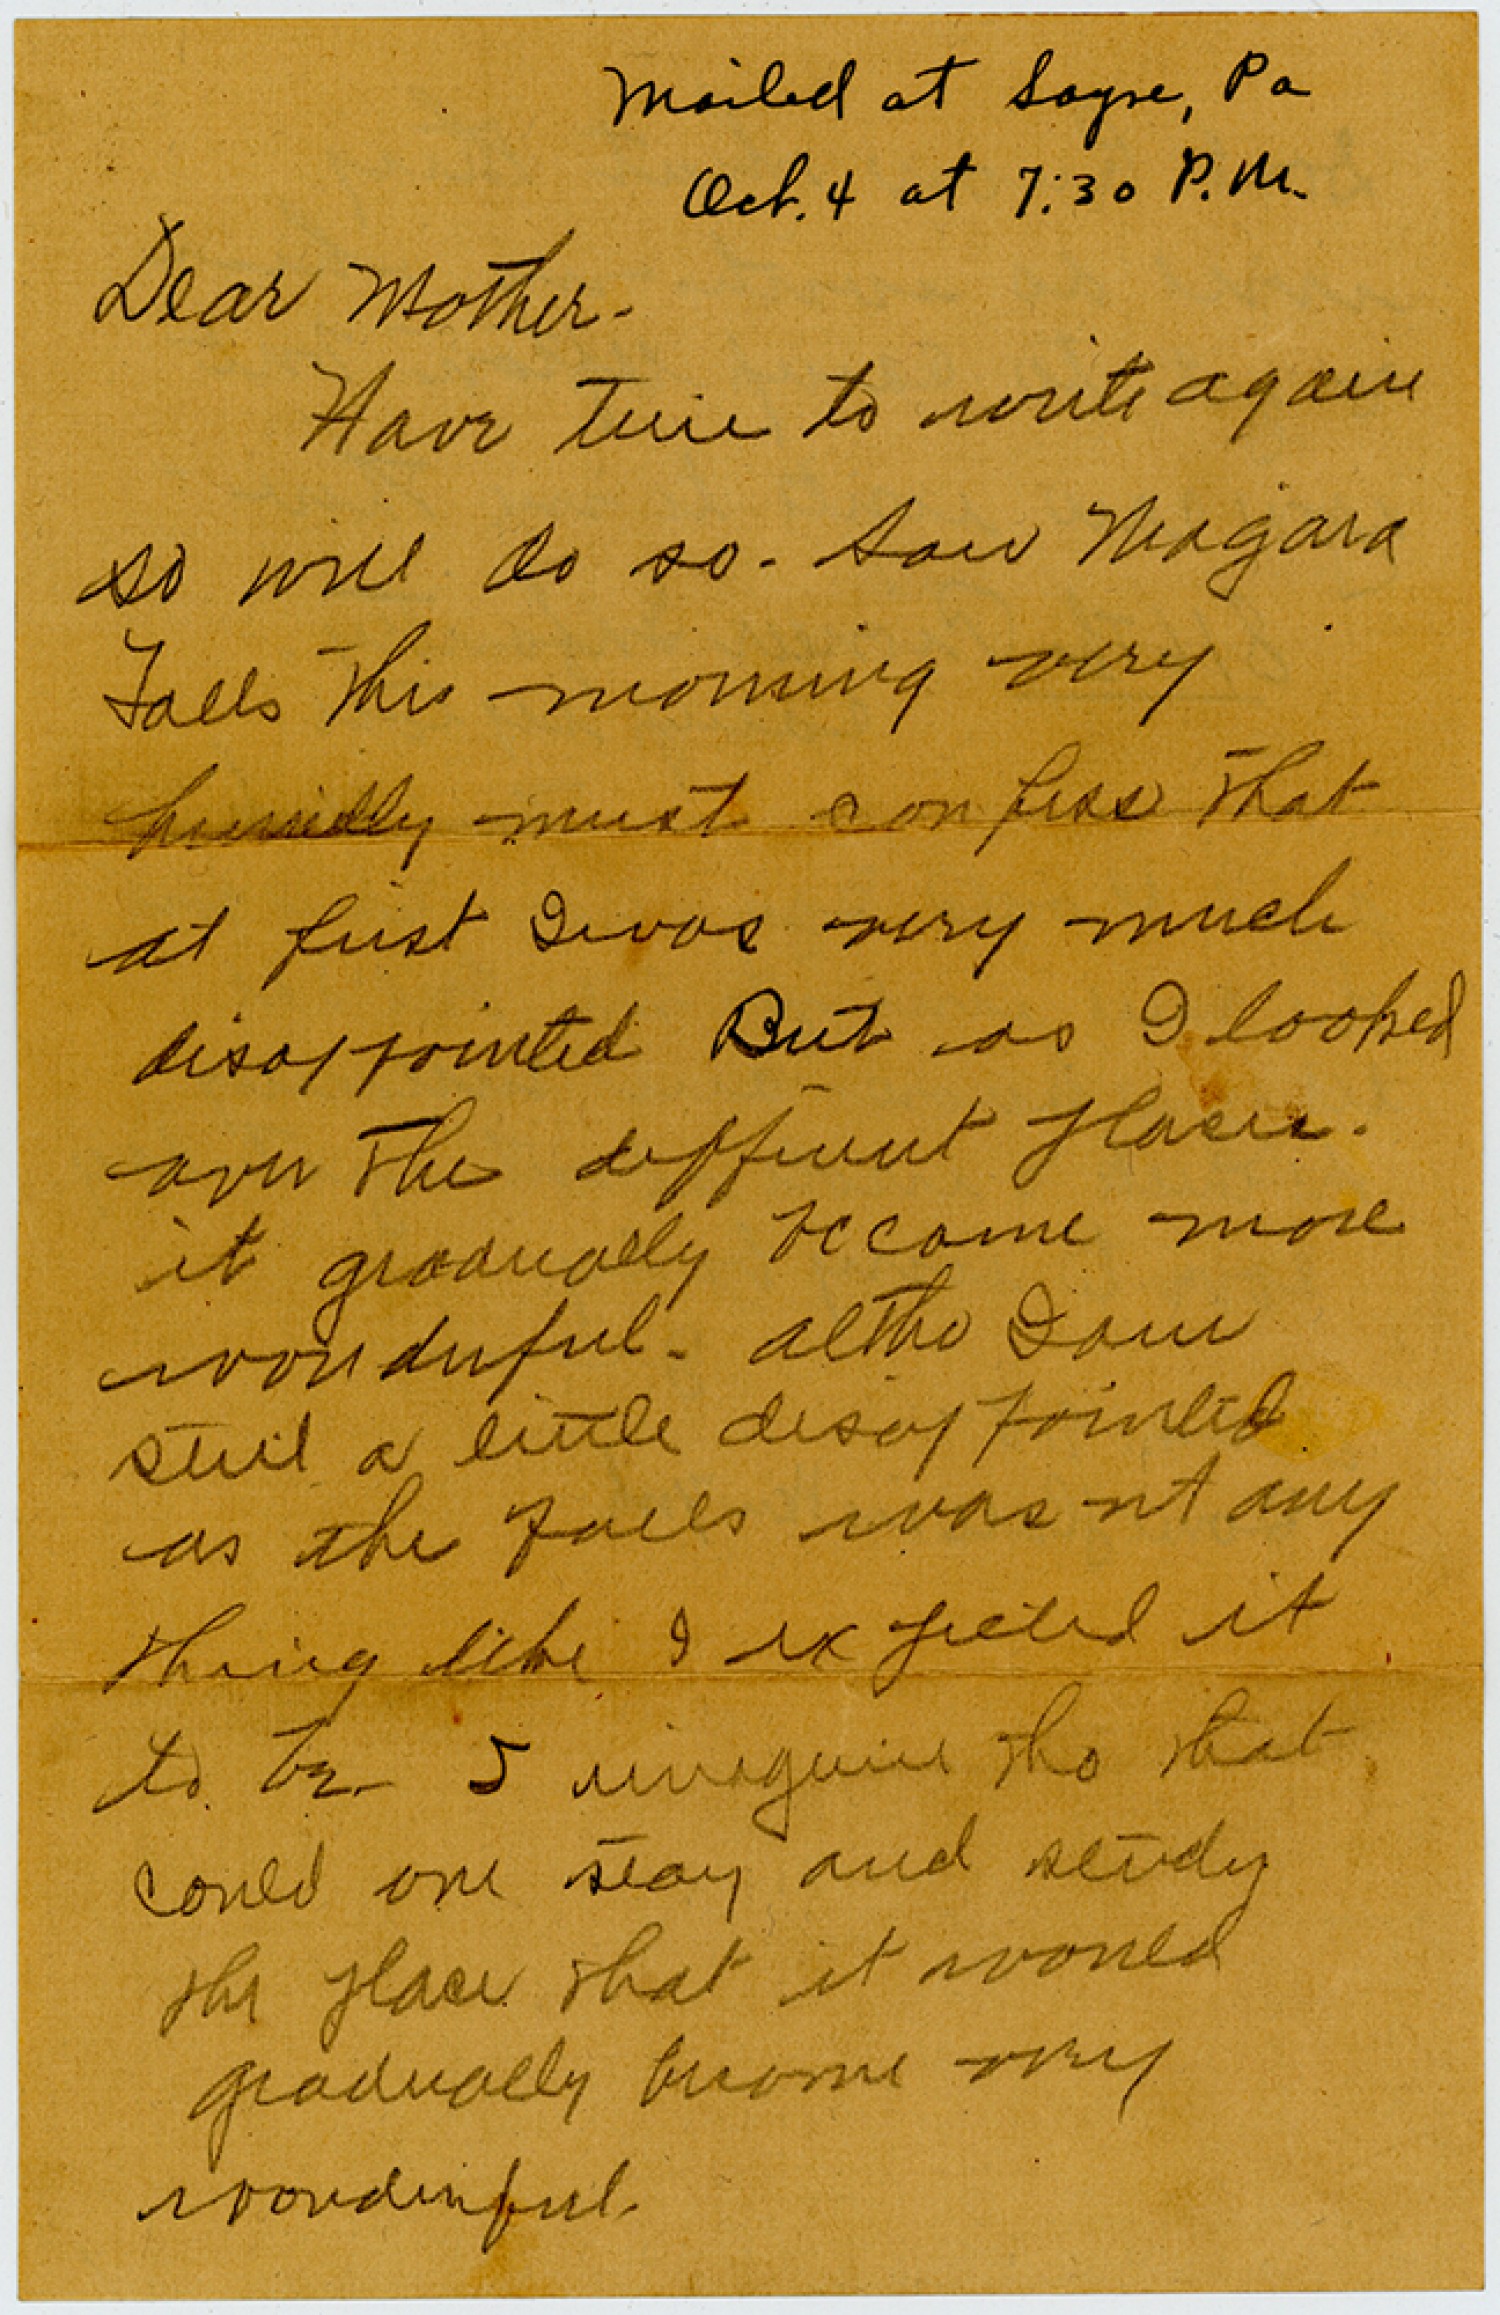 Mailed at Sayre, Pa
Oct. 4 at 7:30 P.M.
Dear Mother.
Have time to write again
so will do so. Saw Niagara
Falls this morning very
humidly must confess that
at first I was very much
disappointed But as I looked
over the different places.
it gradually became more
wonderful. altho I am
still a little disappointed
as the Falls was nt any
thing like I expected it
to be. I imagine tho that
could one stay and study
the place that it would
gradually become very
wonderful.